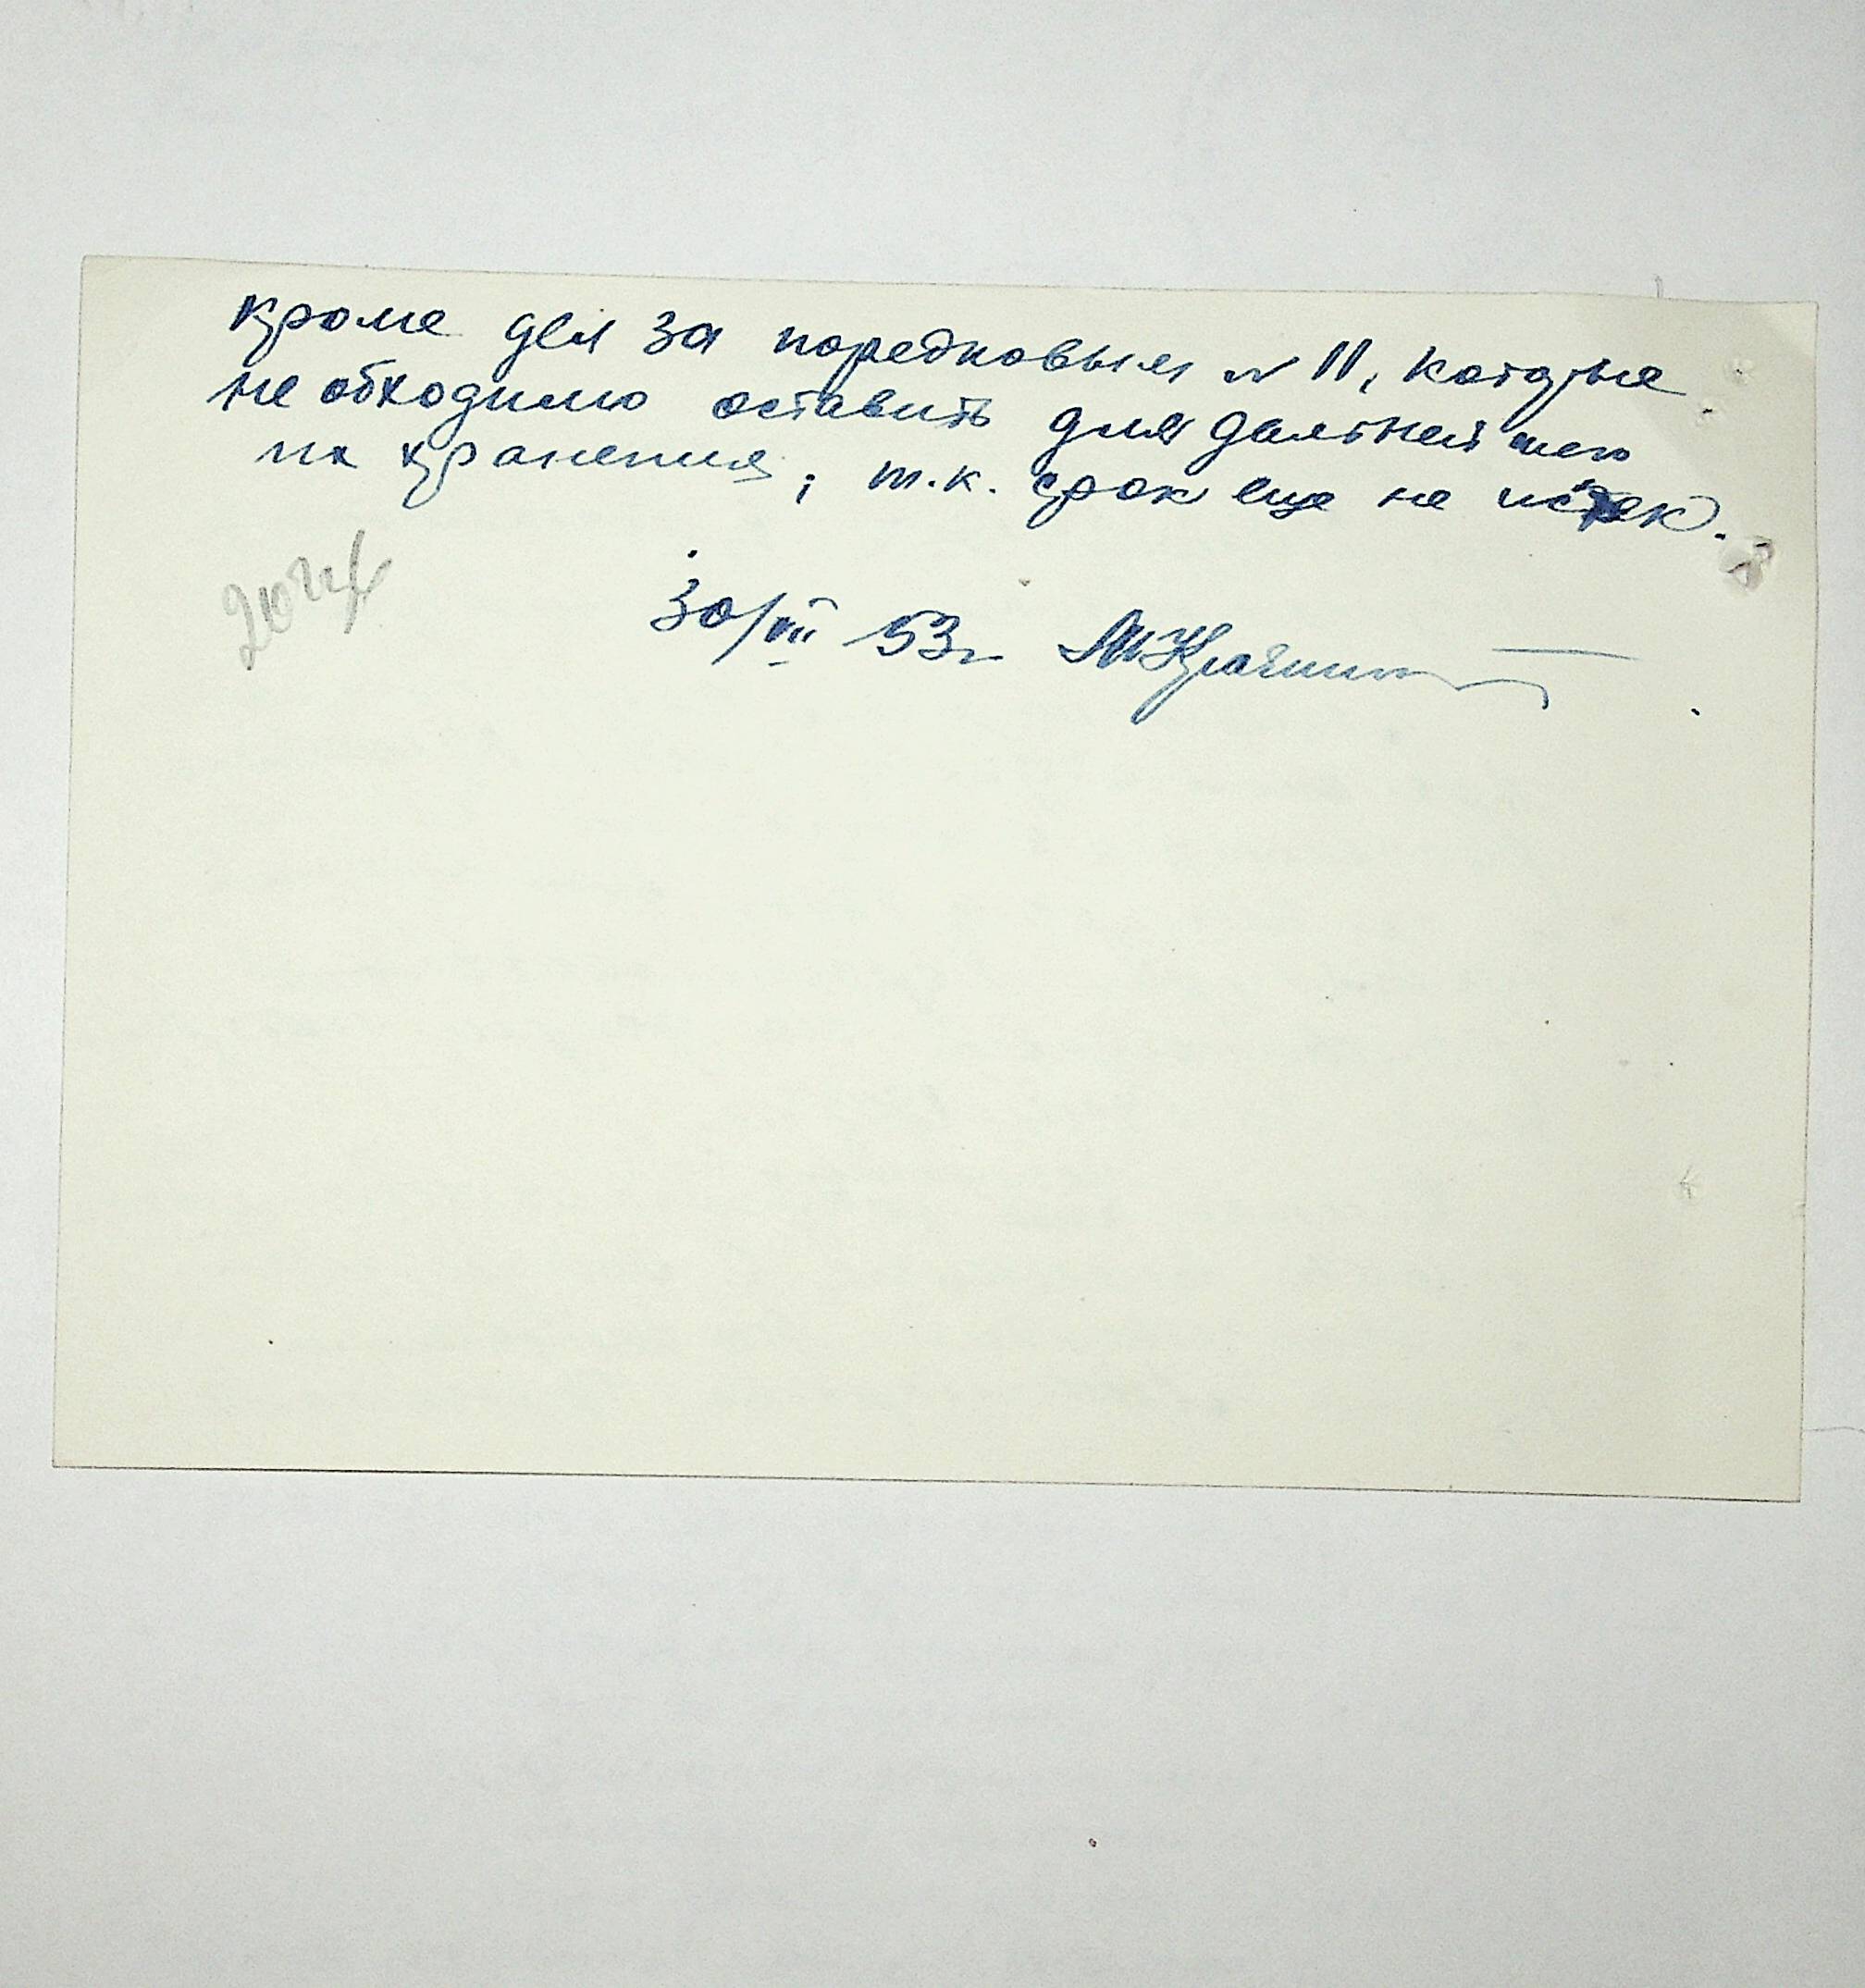 кроме дел за поредковым № 11, которые
необходимо оставить для дальнейшего
их хранения, т.к. срок еще не истек.
30/VII 53г